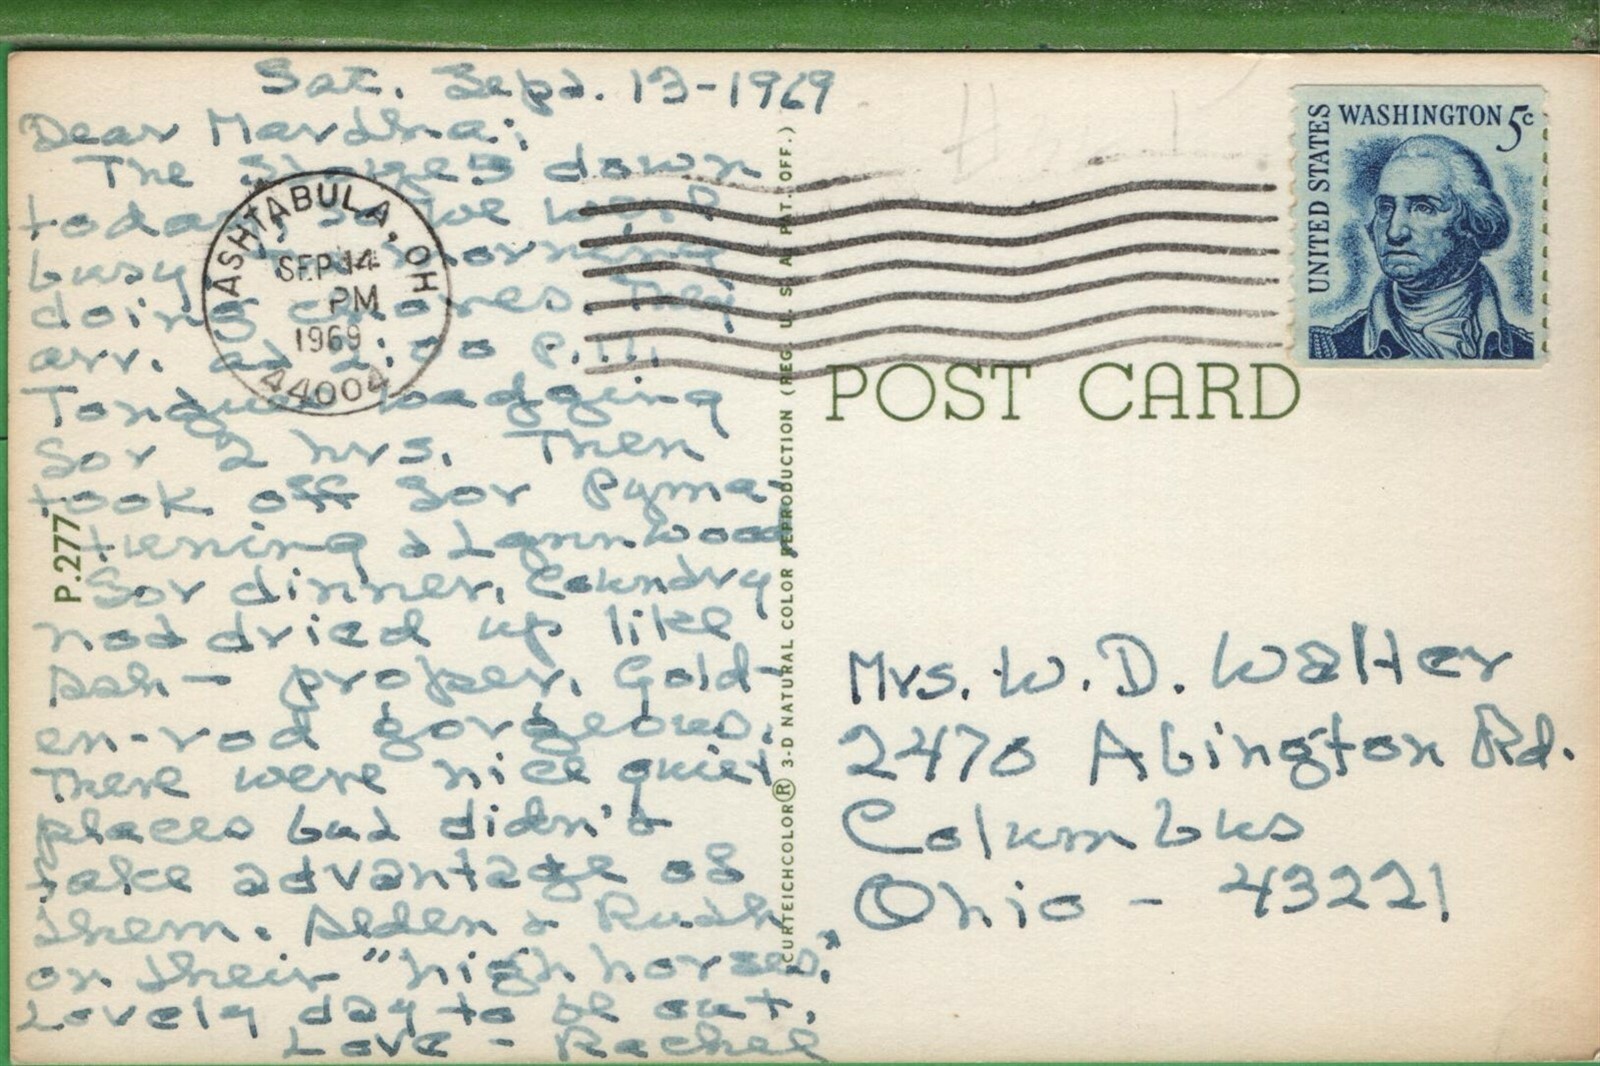 Sat. Sept. 13-1969
Dear Martha:
The down
today so we were
busy morning
doing chores. They
arr. at 2:00 P.M.
Tongues wagging
for 2 hrs. Then
took off for Pyma-
tuning & Lynn.wood
for dinner. Country
not dried up like
Ash - proper. Gold-
en-rod gorgeous.
There were nice quiet
places but didn't
take advantage of
them. Alden & Ruth
on their "high horses."
Lovely day to be out.
Love - Rachel
ASHTABULA, OH
SEP 14
PM
1969
44004
P.277
CURTEICHCOLOR® 3-D NATURAL COLOR REPRODUCTION (REG. U. S. A. PAT. OFF.)
UNITED STATES
WASHINGTON 5c
POST CARD
Mrs. W. D. Walter
2470 Abington Rd.
Columbus
Ohio - 43221